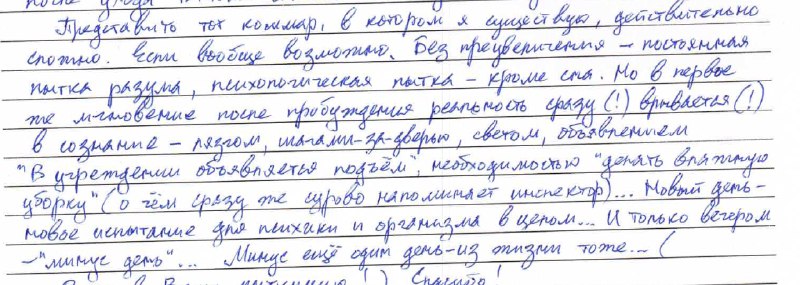 после
Представить тот кошмар, в котором я существую, действительно
сложно. Если вообще возможно. Без преувеличения – постоянная
пытка разума, психологическая пытка – кроме сна. Но в первое
же мгновение после пробуждения реальность сразу (!) врывается (!)
в сознание – лязгом, шагами-за-дверью, светом, объявлением
"В учреждении объявляется подъём", необходимостью "делать влажную
уборку" (о чём сразу же сурово напоминает инспектор)... Новый день –
новое испытание для психики и организма в целом... И только вечером
– "минус день"... Минус ещё один день – из жизни тоже... (
Спасибо!